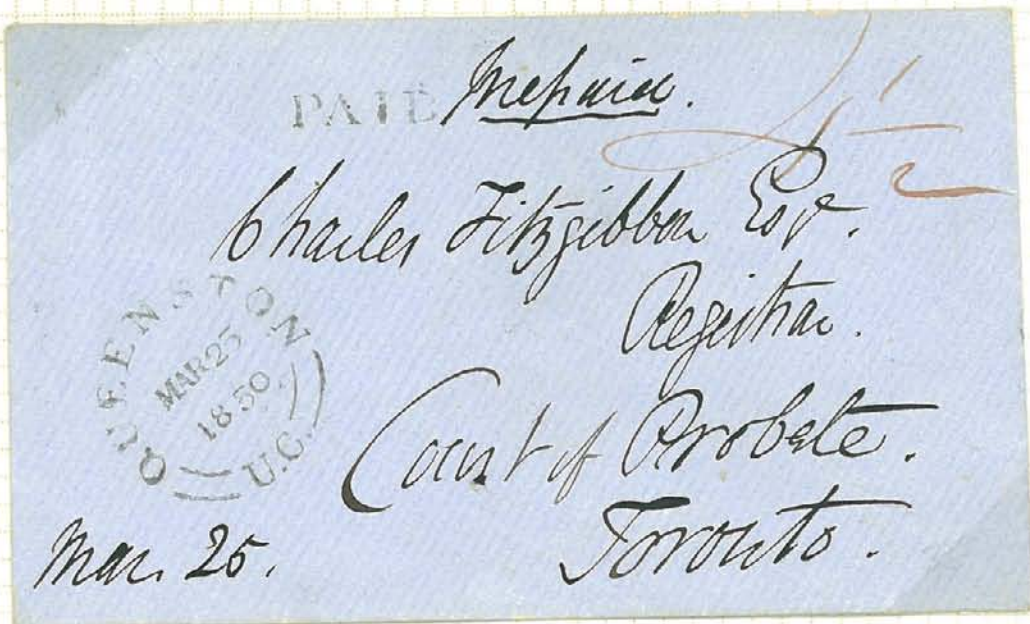 PAID Prepaid.
4½
Charles Fitzgibbon Esqr.
Registrar.
Court of Probate.
Toronto.
QUEENSTON
MAR 25
1850
U.C.
Mar. 25.